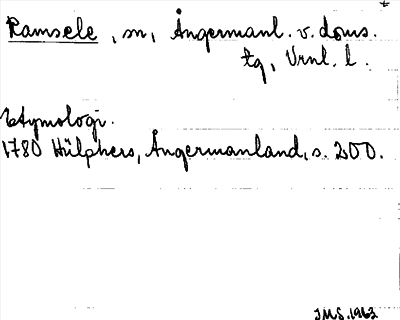 Ramsele, sn, Ångermanl. v. doms.
tg, Vrnl. l.
Etymologi.
1780 Hülphers, Ångermanland, s. 200.
JMS. 1963